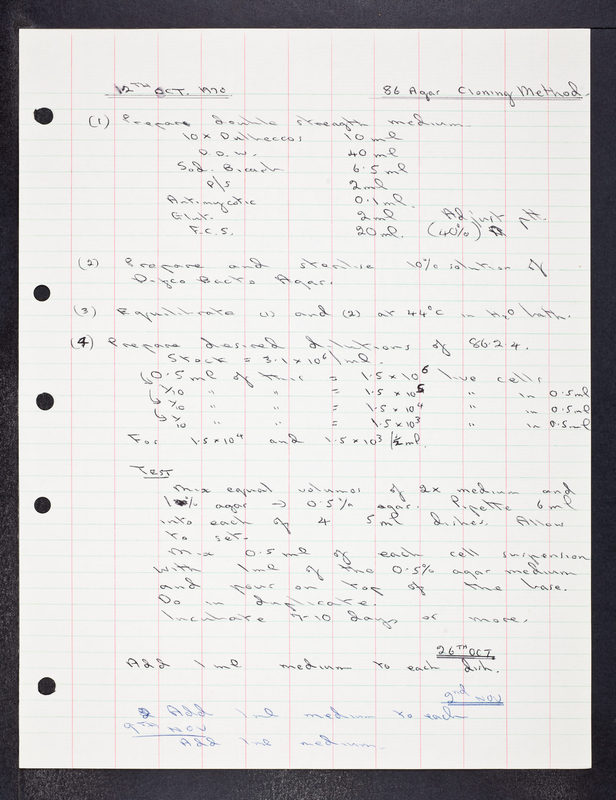 12TH OCT. 1970 86 Agar Cloning Method.
(1) Prepare double strength medium.
10x Dulbeccos 10 ml
D.D.W. 40 ml
Sod. Bicarb 6.5 ml
P/S 2 ml
Antimycotic 0.1 ml.
Glut. 2 ml Adjust pH.
F.C.S. 20 ml. (40%)
(2) Prepare and sterilise 10% solution of
Difco Bacto Agar.
(3) Equilibrate (1) and (2) at 44°C in H2O bath.
(4) Prepare desired dilutions of 86.2.4.
Stock = 3.1 x 10^6 / ml.
0.5 ml of this = 1.5 x 10^6 live cells
1/10 " " = 1.5 x 10^5 " in 0.5 ml
1/10 " " = 1.5 x 10^4 " in 0.5 ml
1/10 " " = 1.5 x 10^3 " in 0.5 ml
For 1.5 x 10^4 and 1.5 x 10^3 /½ ml.
Test
Mix equal volumes of 2x medium and
1% agar → 0.5% agar. Pipette 6 ml
into each of 4 5 ml dishes. Allow
to set.
Mix 0.5 ml of each cell suspension
with 1 ml of the 0.5% agar medium
and pour on top of the base.
Do in duplicate.
Incubate 7-10 days or more.
26TH OCT
Add 1 ml medium to each dish.
2nd NOV
Add 1 ml medium to each
9TH NOV
Add 1 ml medium.